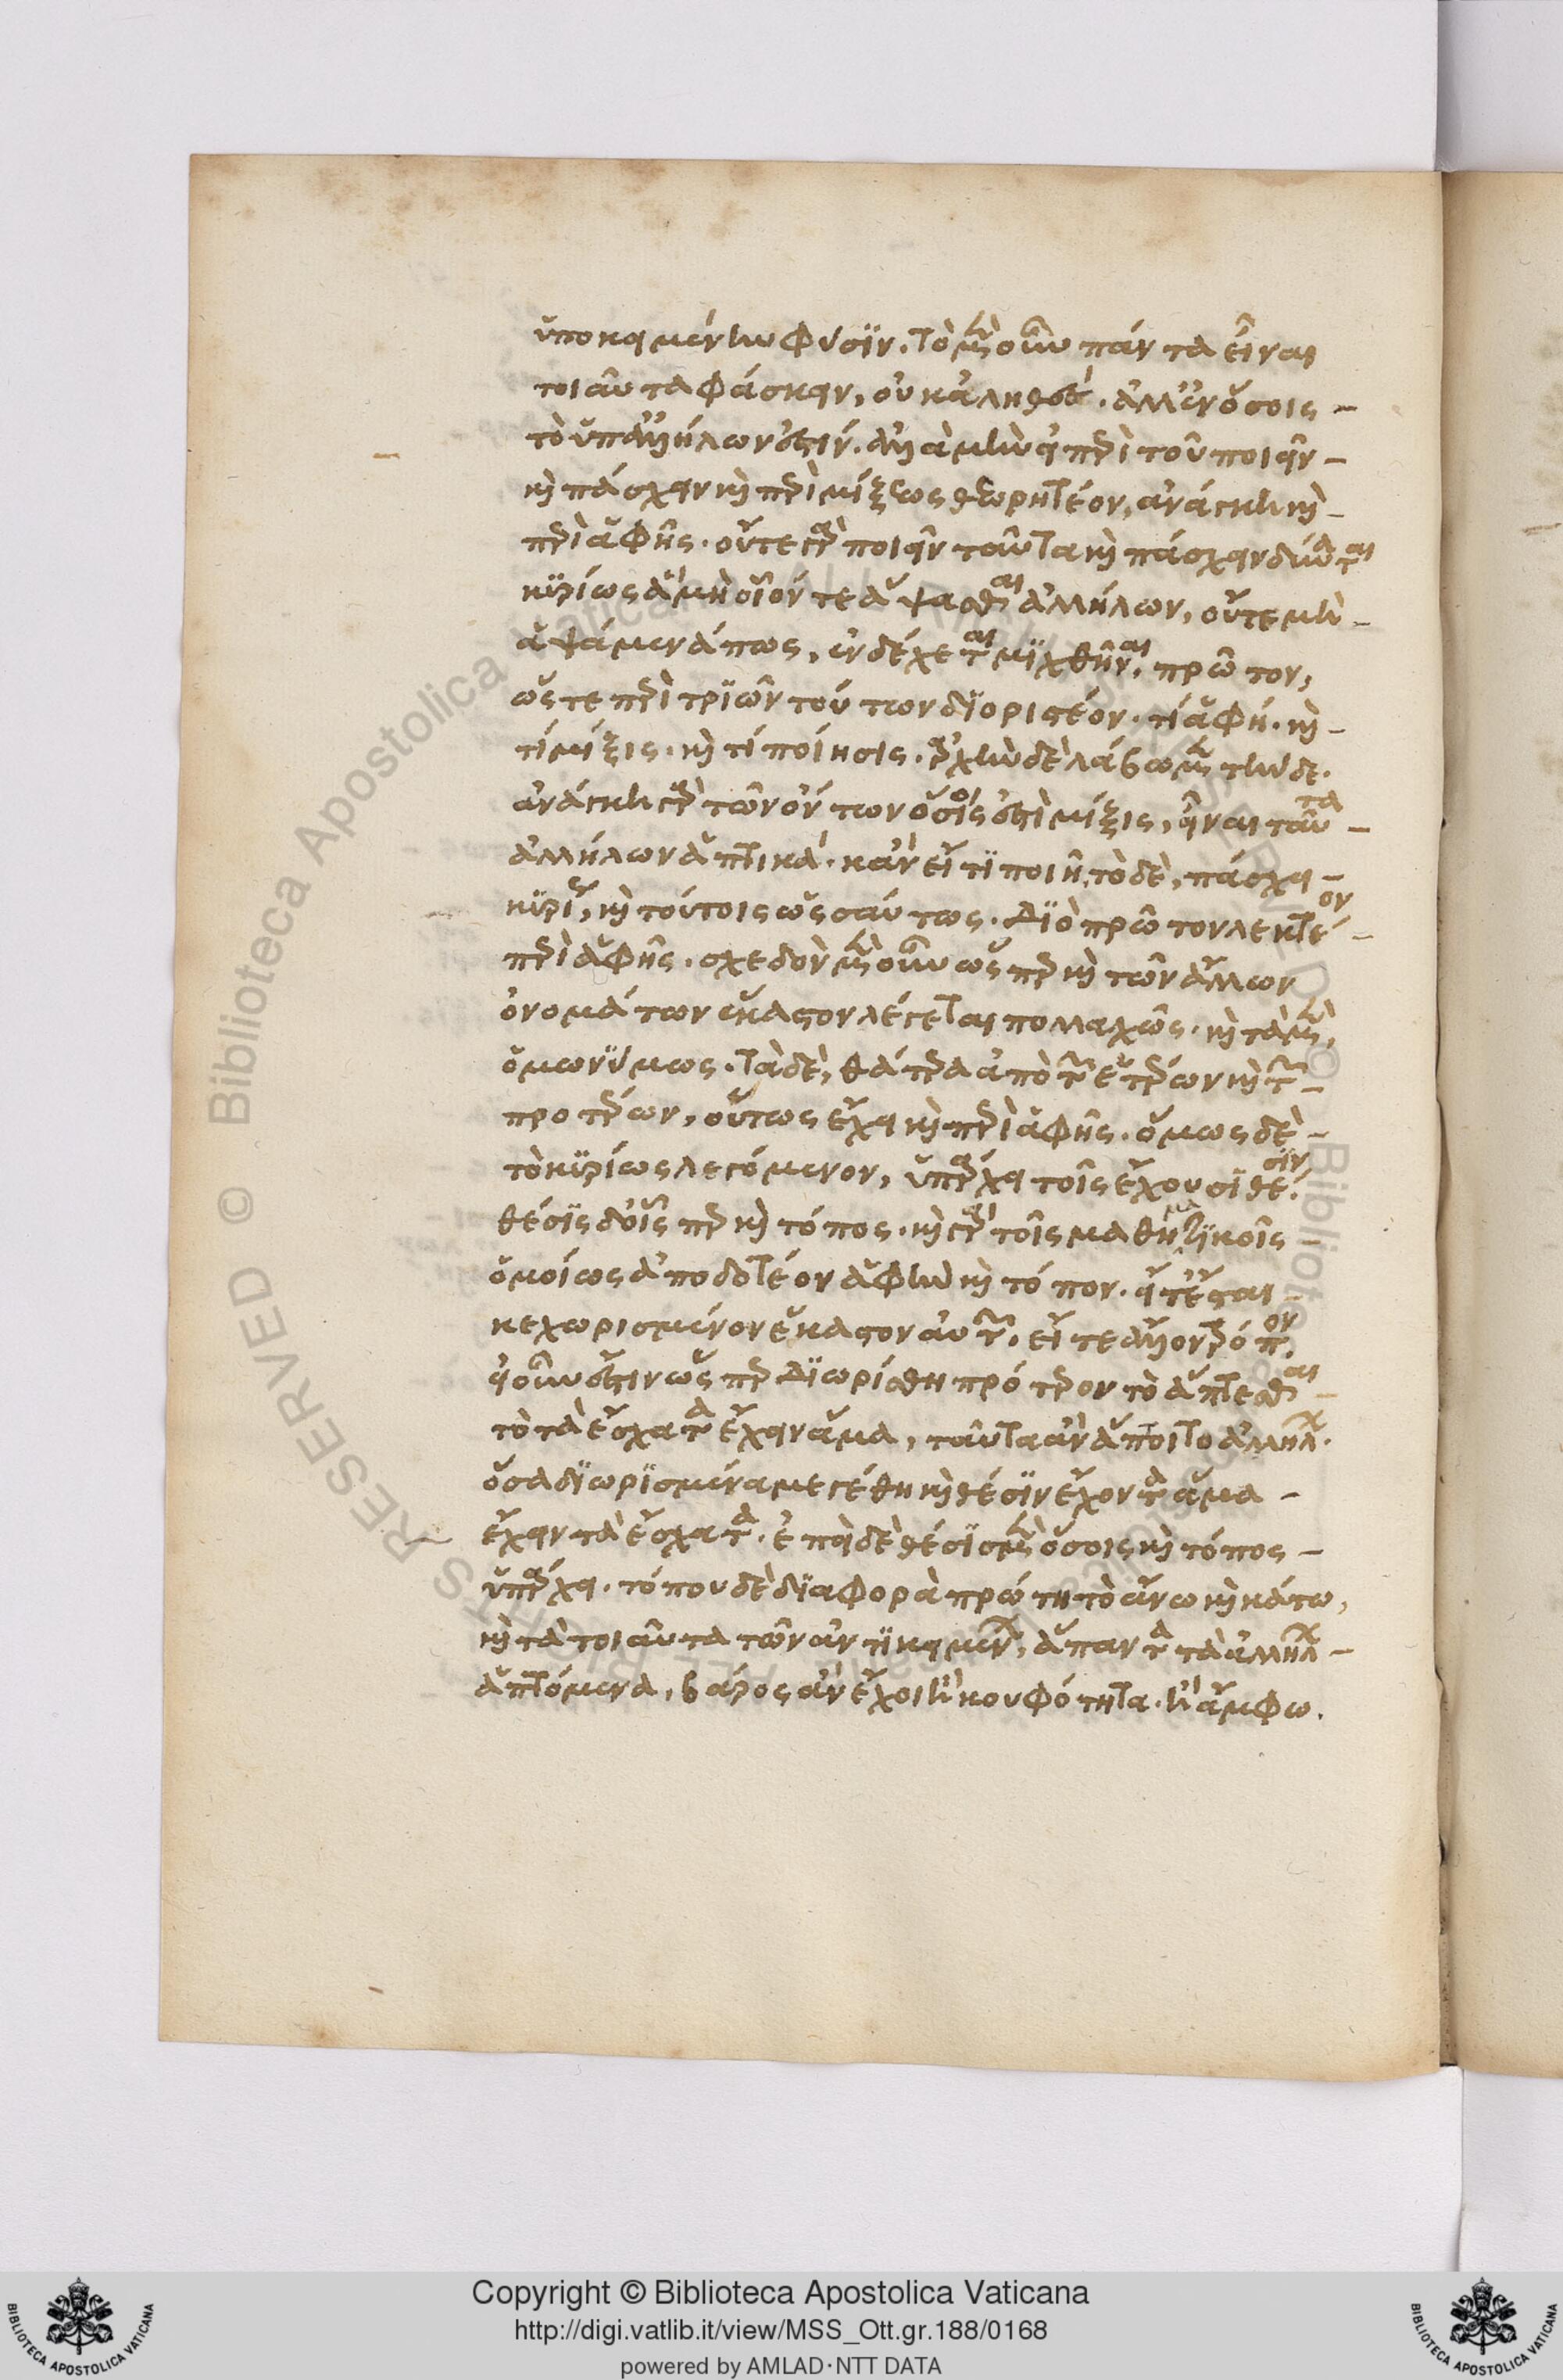 ὑποκειμένην φύσϊν. τὸ μὲν οὖν πάντα εἶναι
τοιαῦτα φάσκειν, οὐκ ἀληθές. ἀλλ' ἐν ὅσοις –
τὸ ὑπ' ἀλλήλων ἐστίν. ἀλλὰ μὴν εἰ περὶ τοῦ ποιεῖν –
καὶ πάσχειν καὶ περὶ μίξεως θεωρητέον, ἀνάγκη καὶ –
περὶ ἁφῆς. οὔτε γὰρ ποιεῖν ταῦτα καὶ πάσχειν δύναται
κϋρίως ἃ μὴ οἷόν τε ἅψασθαι ἀλλήλων, οὔτε μὴ –
ἁψάμενά πως, ἐνδέχεται μϊχθῆναι πρῶτον,
ὥστε περὶ τρϊῶν τούτων δϊοριστέον. τί ἁφή. καὶ –
τί μίξις. καὶ τί ποίησις. ἀρχὴν δὲ λάβωμεν τήνδε.
ἀνάγκη γὰρ τῶν ὄντων ὅσοις ἐστὶ μίξις, εἶναι ταῦτα –
ἀλλήλων ἁπτικά. κἂν εἴ τϊ ποιῆ, τὸ δὲ, πάσχει –
κϋρίως, καὶ τούτοις ὡσαύτως. Δϊὸ πρῶτον λεκτέον –
περὶ ἁφῆς. σχεδὸν μὲν οὖν ὥσπερ καὶ τῶν ἄλλων
ὀνομάτων ἕκαστον λέγεται πολλαχῶς. καὶ τὰ μὲν,
ὁμωνϋμως. τὰ δὲ, θάτερα ἀπὸ τῶν ἑτέρων καὶ τῶν –
προτέρων, οὕτως ἔχει καὶ περὶ ἁφῆς. ὅμως δὲ –
τὸ κϋρίως λεγόμενον, ὑπάρχει τοῖς ἔχουσϊ θέσϊν.
θέσϊς δ' οἷσπερ καὶ τόπος. καὶ γὰρ τοῖς μαθηματϊκοῖς –
ὁμοίως ἀποδοτέον ἁφὴν καὶ τόπον. εἴτ' ἔσται –
κεχωρισμένον ἕκαστον αὐτῶν. εἴτε ἄλλον τρόπον.
εἰ οὖν ἐστιν ὥσπερ Δϊωρίσθη πρότερον τὸ ἅπτεσθαι –
τὸ τὰ ἔσχατα ἔχειν ἅμα, ταῦτα ἂν ἅποιτο ἀλλήλων.
ὅσα δϊωρϊσμένα μεγέθη καὶ θέσϊν ἔχοντα ἅμα –
ἔχειν τὰ ἔσχατα. ἐπεὶ δὲ θέσϊς μὲν ὅσοις καὶ τόπος –
ὑπάρχει. τόπου δὲ δϊαφορὰ πρώτη τὸ ἄνω καὶ κάτω,
καὶ τὰ τοιαῦτα τῶν ἀντϊκειμένων, ἅπαντα τὰ ἀλλήλων –
ἁπτόμενα, βάρος ἂν ἔχοι ἢ κουφότητα. ἢ ἄμφω.
Copyright © Biblioteca Apostolica Vaticana
http://digi.vatlib.it/view/MSS_Ott.gr.188/0168
powered by AMLAD·NTT DATA